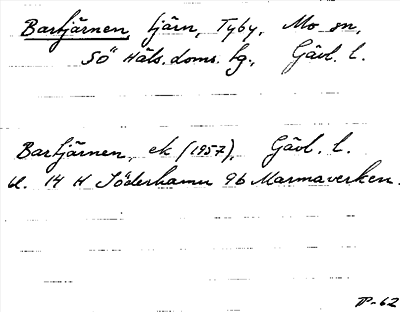 Bartjärnen, tjärn, Tyby, Mo sn,
SÖ Häls. doms. tg., Gävl. l.
Bartjärnen, ek (1957), Gävl. l.
bl. 14 H Söderhamn 9b Marmaverken.
P-62